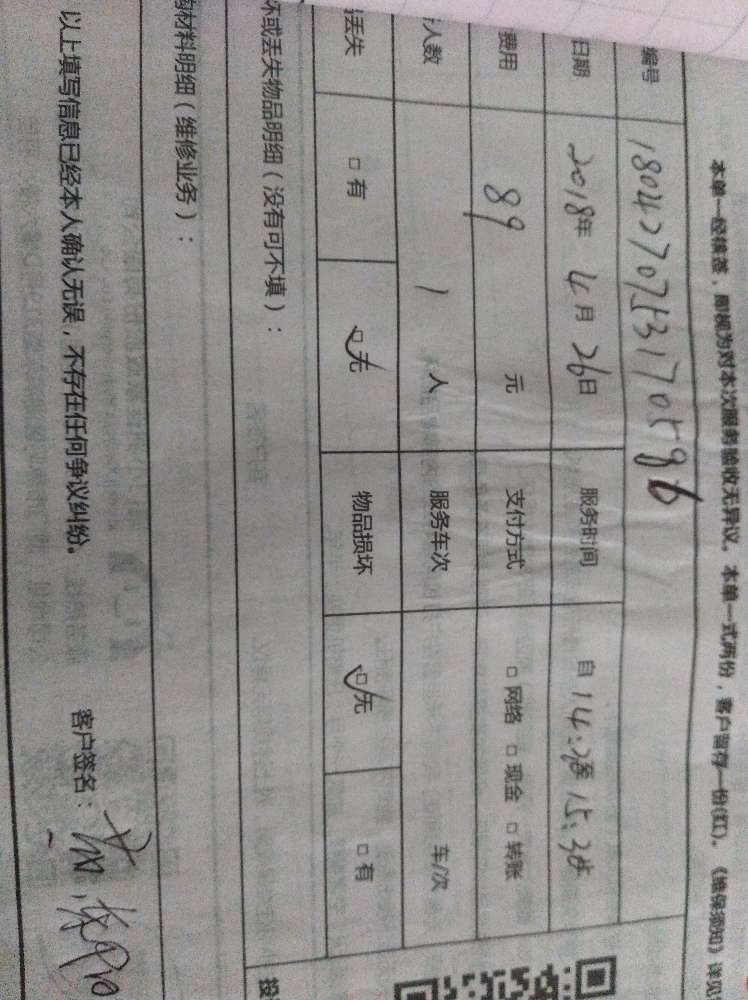 本单一经核签，即视为对本次服务验收无异议。本单一式两份，客户留存一份(红)。《维保须知》详见
编号 1804270753170586
日期 2018年 4月 26日 服务时间 自 14:30至15:30
费用 89 元 支付方式 □ 网络 □ 现金 □ 转账
人数 1 人 服务车次 车/次
丢失 □ 有 □ 无 物品损坏 □ 无 □ 有
坏或丢失物品明细（没有可不填）：
材料明细（维修业务）：
以上填写信息已经本人确认无误，不存在任何争议纠纷。 客户签名：